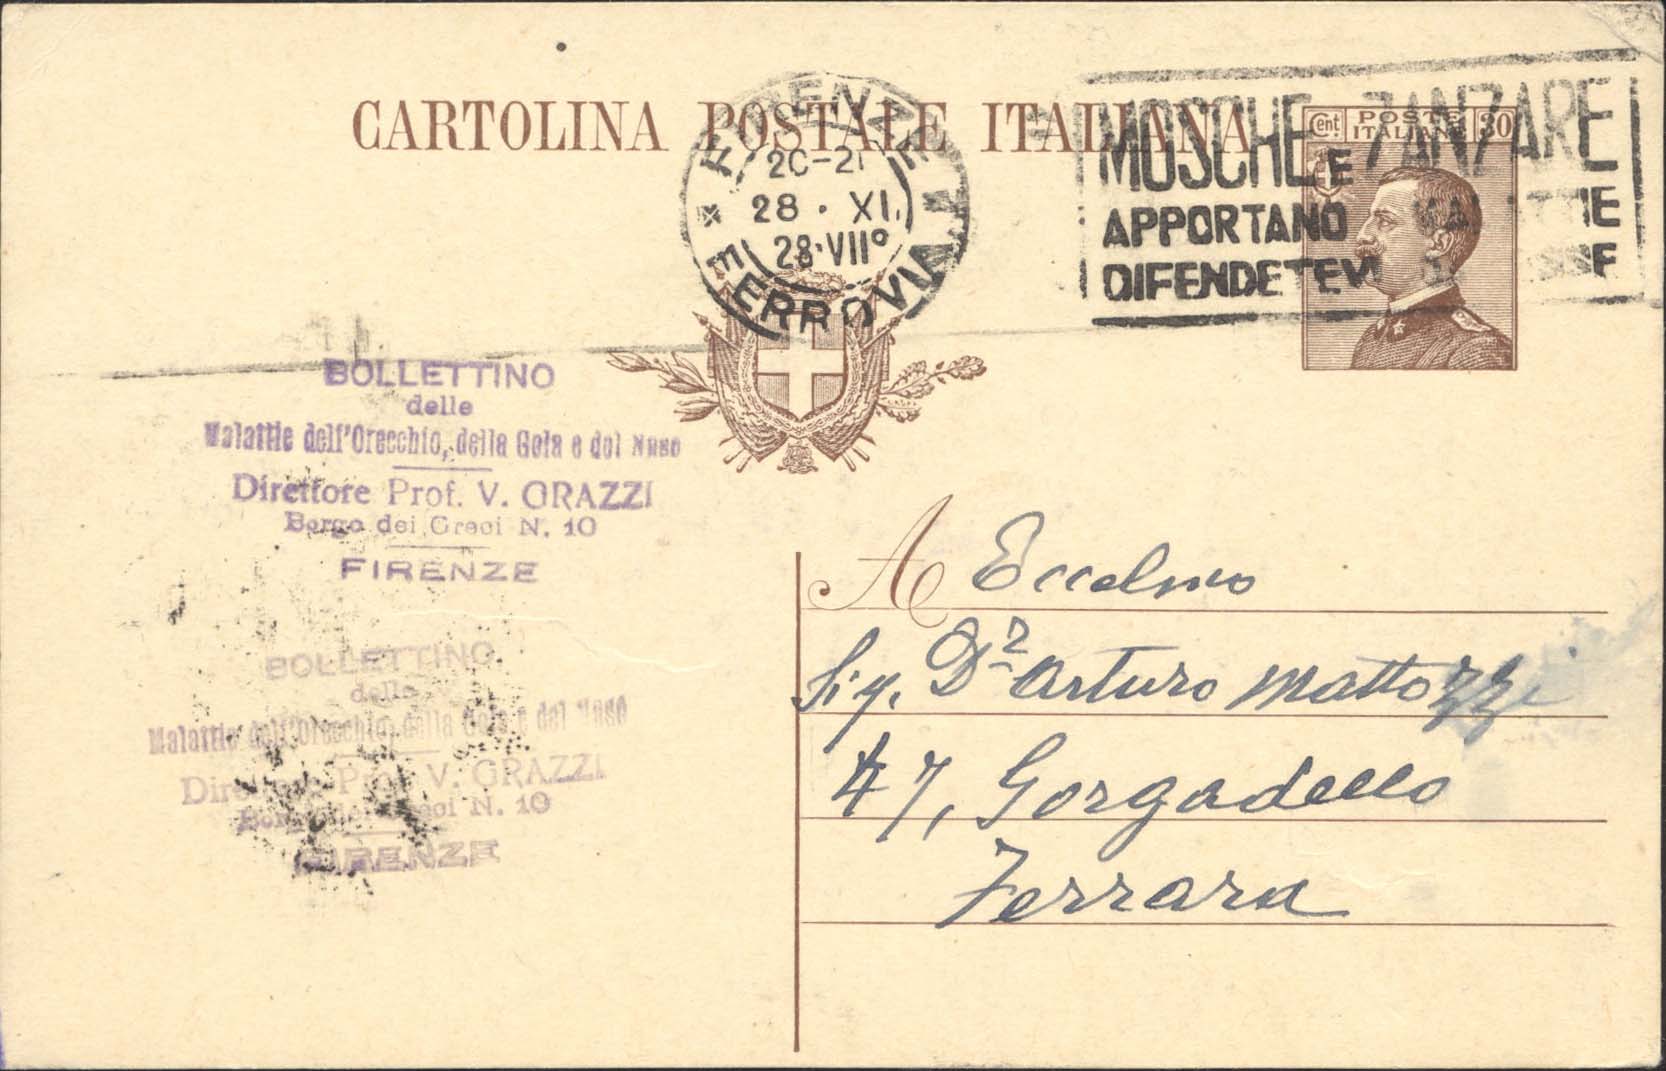 CARTOLINA POSTALE ITALIANA
FIRENZE
20-21
28 · XI.
28·VII°
FERROVIA
MOSCHE E ZANZARE
APPORTANO MALATTIE
DIFENDETEVI
Cent POSTE ITALIANE 30
BOLLETTINO
delle
Malattie dell'Orecchio, della Gola e del Naso
Direttore Prof. V. GRAZZI
Borgo dei Greci N. 10
FIRENZE
BOLLETTINO
delle
Malattie dell'Orecchio, della Gola e del Naso
Direttore Prof. V. GRAZZI
Borgo dei Greci N. 10
FIRENZE
A Eccelmo
Sig. Dr Arturo Mattozzi
47, Gorgadello
Ferrara